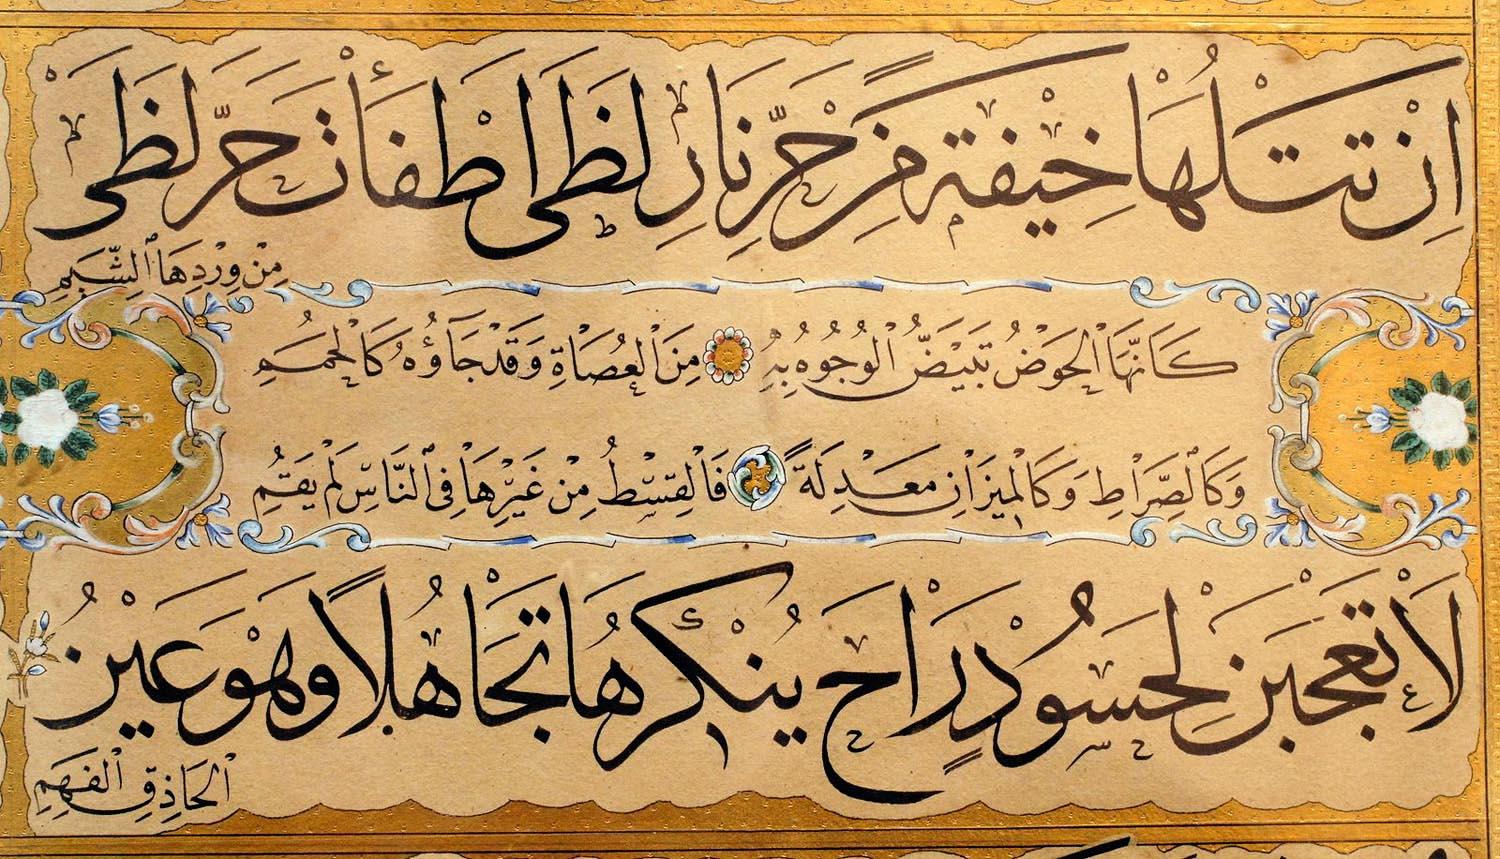 اِنْ تَتْلُهَا خِيْفَةً مِنْ حَرِّ نَارِ لَظٰى اَطْفَأْتَ حَرَّ لَظٰى
مِنْ وِرْدِهَا الشَّبِمِ
كَاَنَّهَا الْحَوْضُ تَبْيَضُّ الْوُجُوهُ بِهِ مِنَ الْعُصَاةِ وَقَدْ جَاؤُهُ كَالْحُمَمِ
وَكَالصِّرَاطِ وَكَالْمِيزَانِ مَعْدِلَةً فَالْقِسْطُ مِنْ غَيْرِهَا فِى النَّاسِ لَمْ يَقُمِ
لَا تَعْجَبَنْ لِحَسُودٍ رَاحَ يُنْكِرُهَا تَجَاهُلًا وَهُوَ عَيْنُ
الْحَاذِقِ الْفَهِمِ